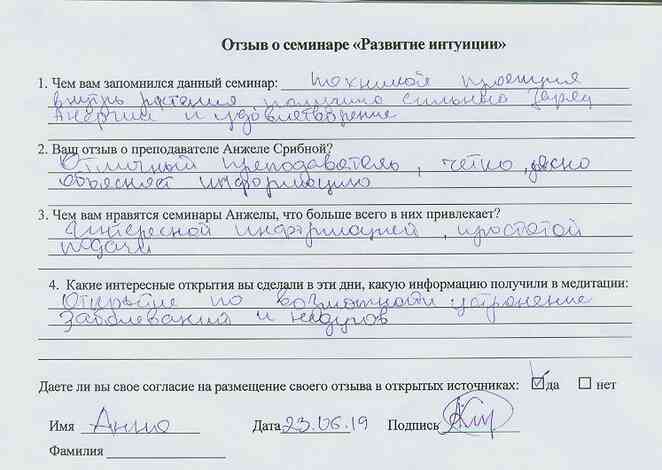 Отзыв о семинаре «Развитие интуиции»
1. Чем вам запомнился данный семинар: Техникой проекция
внутрь растения получила сильный заряд
Энергии и удовлетворение
2. Ваш отзыв о преподавателе Анжеле Срибной?
Отличный преподаватель, четко, ясно
объясняет информацию
3. Чем вам нравятся семинары Анжелы, что больше всего в них привлекает?
Интересной информацией, простотой
подачи
4. Какие интересные открытия вы сделали в эти дни, какую информацию получили в медитации:
Открытие по возможности устранение
Заболеваний и недугов
Даете ли вы свое согласие на размещение своего отзыва в открытых источниках: да нет
Имя Анна Дата 23.06.19 Подпись
Фамилия